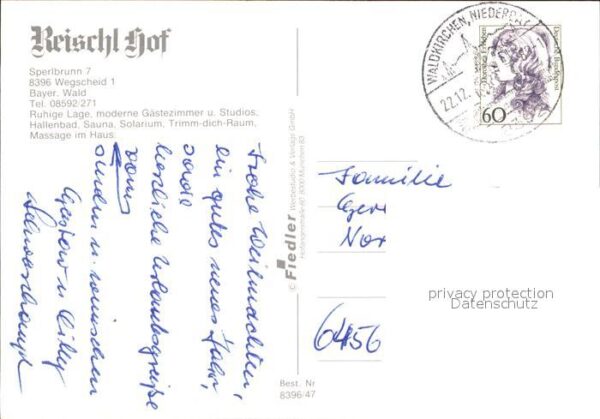 Reischl Hof
Sperlbrunn 7
8396 Wegscheid 1
Bayer. Wald
Tel. 08592/271
Ruhige Lage, moderne Gästezimmer u. Studios,
Hallenbad, Sauna, Solarium, Trimm-dich-Raum,
Massage im Haus.
Frohe Weihnachten,
ein gutes neues Jahr,
sowie
herzliche Urlaubsgrüße
senden u. wünschen
Gustav u. Cilly
© Fiedler Werbestudio & Verlags GmbH
8000 München
Best. Nr
8396/47
WALDKIRCHEN, NIEDERB
22.12.
Deutsche Bundespost
60
Familie
Ger
Nor
6456
privacy protection
Datenschutz